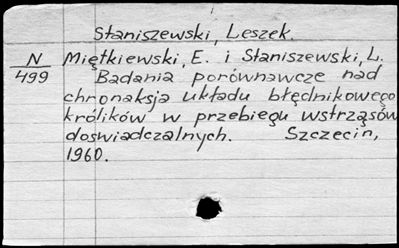 Staniszewski, Leszek.
N Miętkiewski, E. i Staniszewski, L.
499 Badania porównawcze nad
chronaksja układu błędnikowego
królików w przebiegu wstrząsów
doswiadczalnych. Szczecin,
1960.